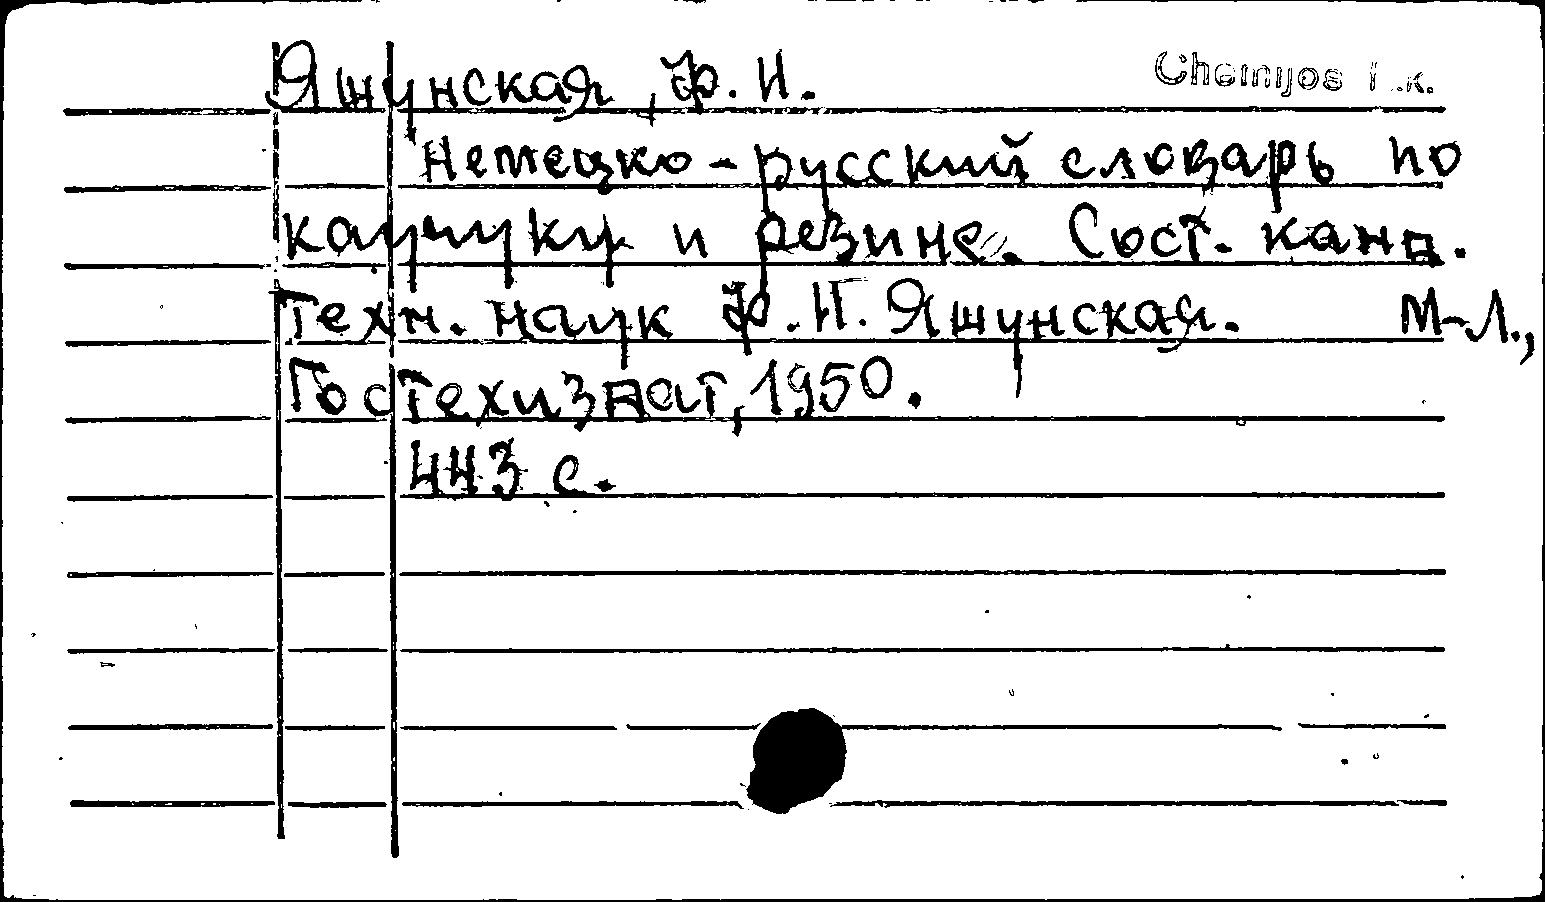 Яшунская, Ф. И.
Chemijos f.k.
Немецко-русский словарь по
каучуку и резине. Сост. канд.
техн. наук Ф.И. Яшунская. М-Л.,
Гостехиздат, 1950.
443 с.